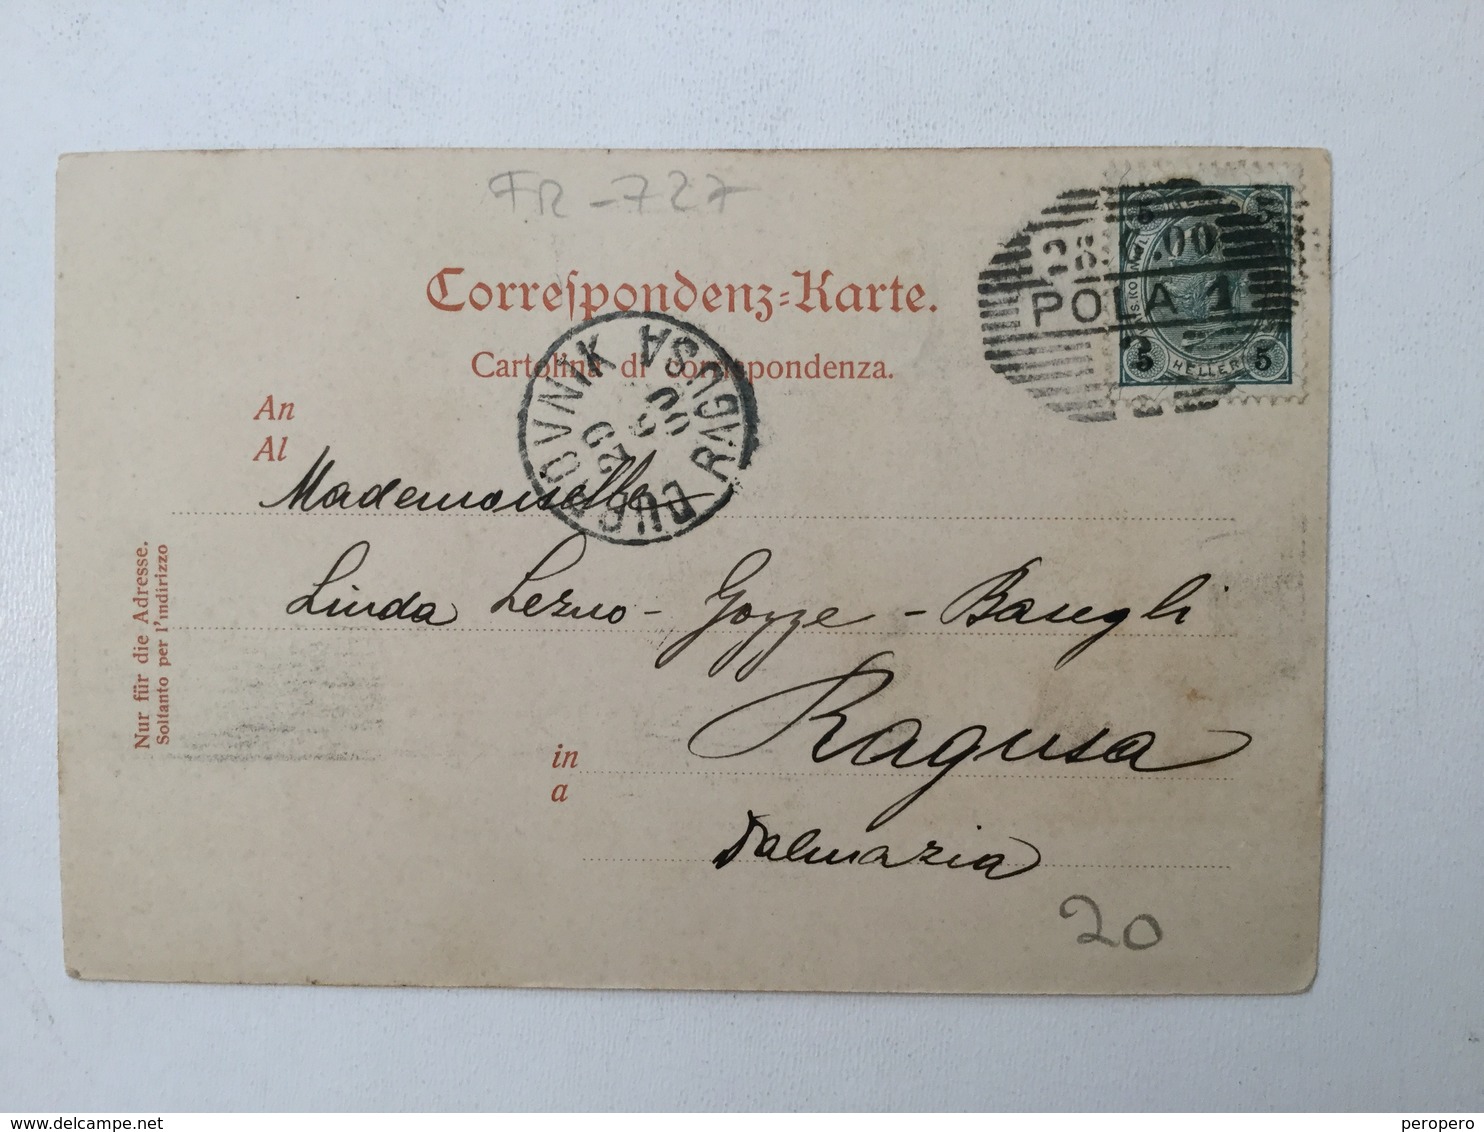 FR-727
Correspondenz-Karte.
Cartolina di corrispondenza.
5 5
28. .00
POLA 1
5 HELLER 5
RAGUSA DUBROVNIK
29
00
An
Al
Mademoiselle
Linda Lezno - Gozze - Basegli
in Ragusa
a
Dalmazia
20
Nur für die Adresse.
Soltanto per l'indirizzo
delcampe.net
peropero